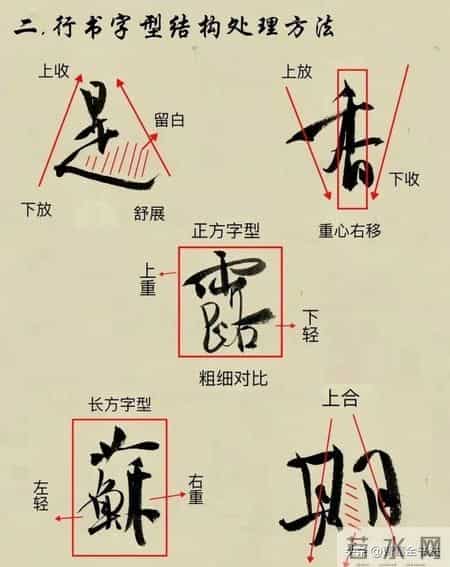 二.行书字型结构处理方法
上收
上放
是
留白
香
下放
舒展
下收
重心右移
正方字型
上重
露
下轻
粗细对比
长方字型
上合
左轻
蘇
右重
期